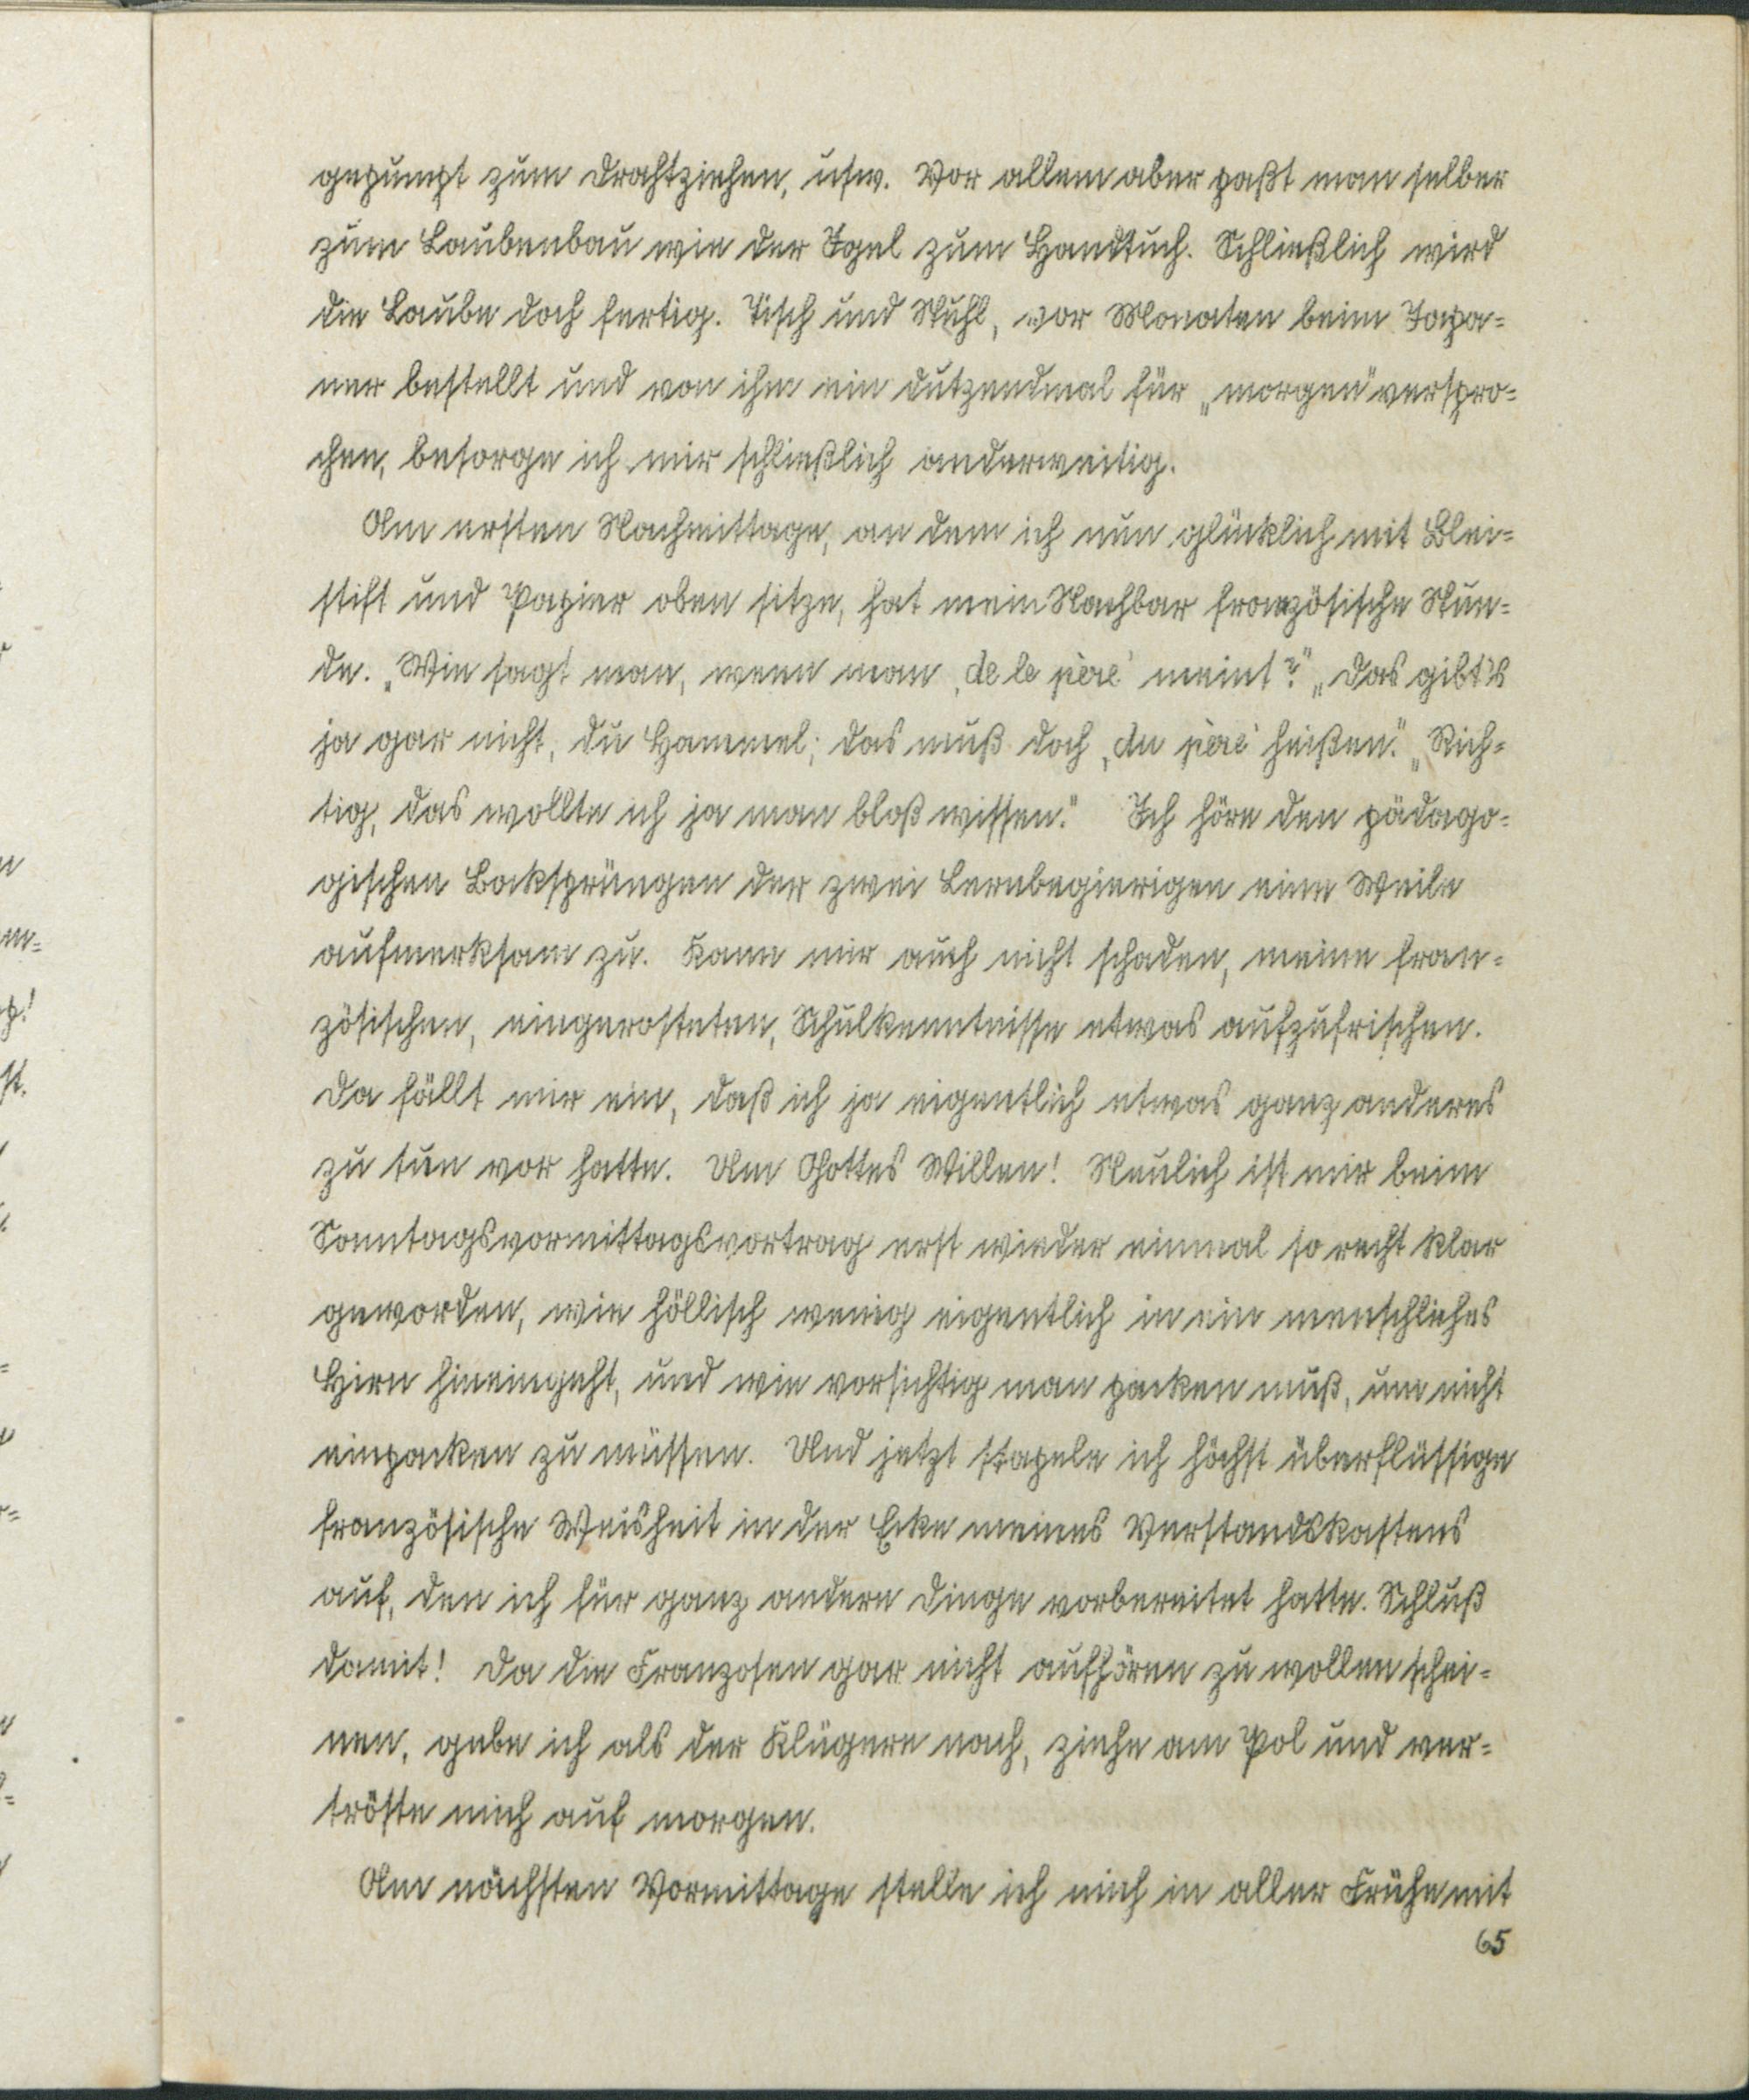 gepumpt zum Drahtziehen, usw. Vor allem aber paßt man selber
zum Laubenbau wie der Igel zum Handtuch. Schließlich wird
die Laube doch fertig. Tisch und Stuhl, vor Monaten beim Japa=
ner bestellt und von ihm ein dutzendmal für „morgen“ verspro=
chen, besorge ich mir schließlich anderweitig.
Am ersten Nachmittage, an dem ich nun glücklich mit Blei=
stift und Papier oben sitze, hat mein Nachbar französische Stun=
de. „Wie sagt man, wenn man ‚de le père‘ meint?“ „Das gibt's
ja gar nicht, du Hammel; das muß doch ‚du père‘ heißen.“ „Rich=
tig, das wollte ich ja man bloß wissen.“ Ich höre den pädago=
gischen Bocksprüngen der zwei Lernbegierigen eine Weile
aufmerksam zu. Kann mir auch nicht schaden, meine fran=
zösischen, eingerosteten, Schulkenntnisse etwas aufzufrischen.
Da fällt mir ein, daß ich ja eigentlich etwas ganz anderes
zu tun vor hatte. Um Gottes Willen! Neulich ist mir beim
Sonntagsvormittagsvortrag erst wieder einmal so recht klar
geworden, wie höllisch wenig eigentlich in ein menschliches
Hirn hineingeht, und wie vorsichtig man packen muß, um nicht
einpacken zu müssen. Und jetzt stapele ich höchst überflüssige
französische Weisheit in der Ecke meines Verstandskastens
auf, den ich für ganz andere Dinge vorbereitet hatte. Schluß
damit! Da die Franzosen gar nicht aufhören zu wollen schei=
nen, gebe ich als der Klügere nach, ziehe am Pol und ver=
tröste mich auf morgen.
Am nächsten Vormittage stelle ich mich in aller Frühe mit
65